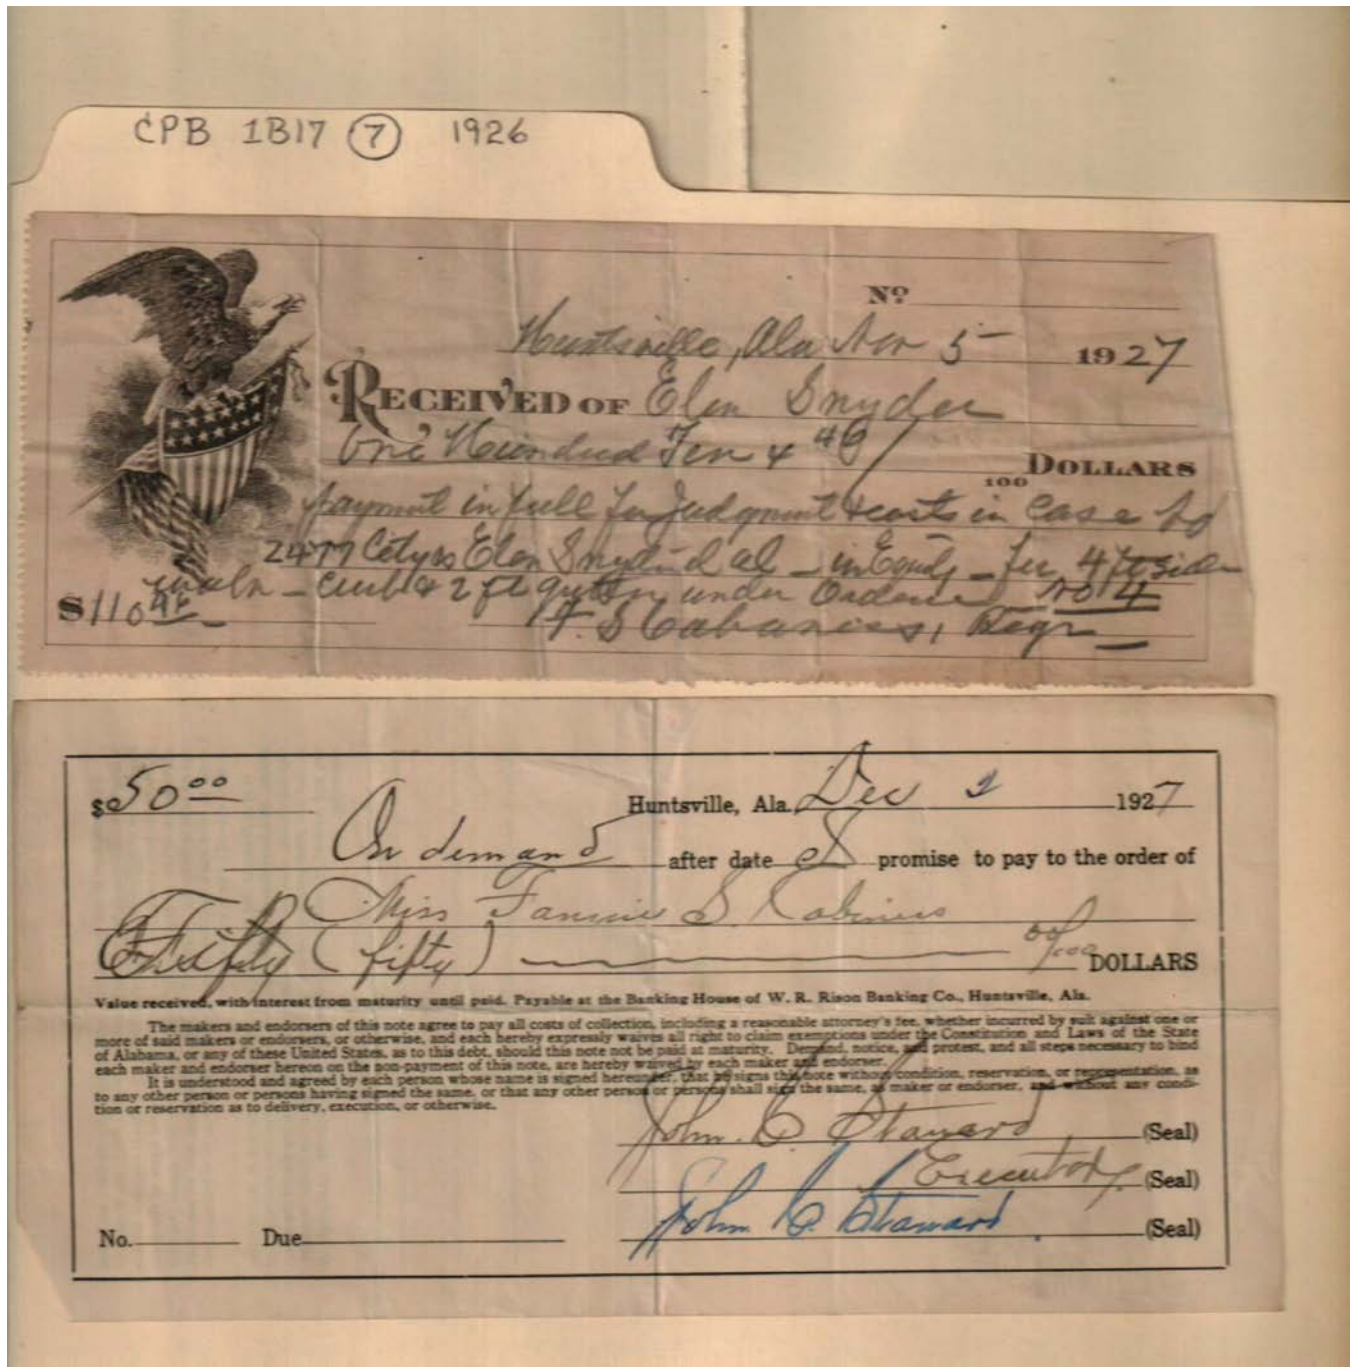 CPB 1B17 7 1926
No
Huntsville, Ala Nov 5 1927
RECEIVED OF Elen Snyder
One Hundred Ten & 46/100 DOLLARS
payment in full for Judgment & costs in Case No
2477 City vs Elen Snyder et al - in Equity - for 4 ft side
walk - curb & 2 ft gutter under Ordinance No 4
$110
F. S. Cabaniss, Regr
$50 00 Huntsville, Ala. Dec 2 1927
On demand after date I promise to pay to the order of
Miss Fannie S. Cabiness
Fifty (fifty) 00/100 DOLLARS
Value received, with interest from maturity until paid. Payable at the Banking House of W. R. Rison Banking Co., Huntsville, Ala.
The makers and endorsers of this note agree to pay all costs of collection, including a reasonable attorney's fee, whether incurred by suit against one or
more of said makers or endorsers, or otherwise, and each hereby expressly waives all right to claim exemptions under the Constitution and Laws of the State
of Alabama, or any of these United States, as to this debt, should this note not be paid at maturity. Demand, notice, and protest, and all steps necessary to bind
each maker and endorser hereon on the non-payment of this note, are hereby waived by each maker and endorser.
It is understood and agreed by each person whose name is signed hereunder, that he signs this note without condition, reservation, or representation, as
to any other person or persons having signed the same, or that any other person or persons shall sign the same, as maker or endorser, and without any condi-
tion or reservation as to delivery, execution, or otherwise.
John C. Stanard (Seal)
Executor. (Seal)
John C. Stanard (Seal)
No. Due